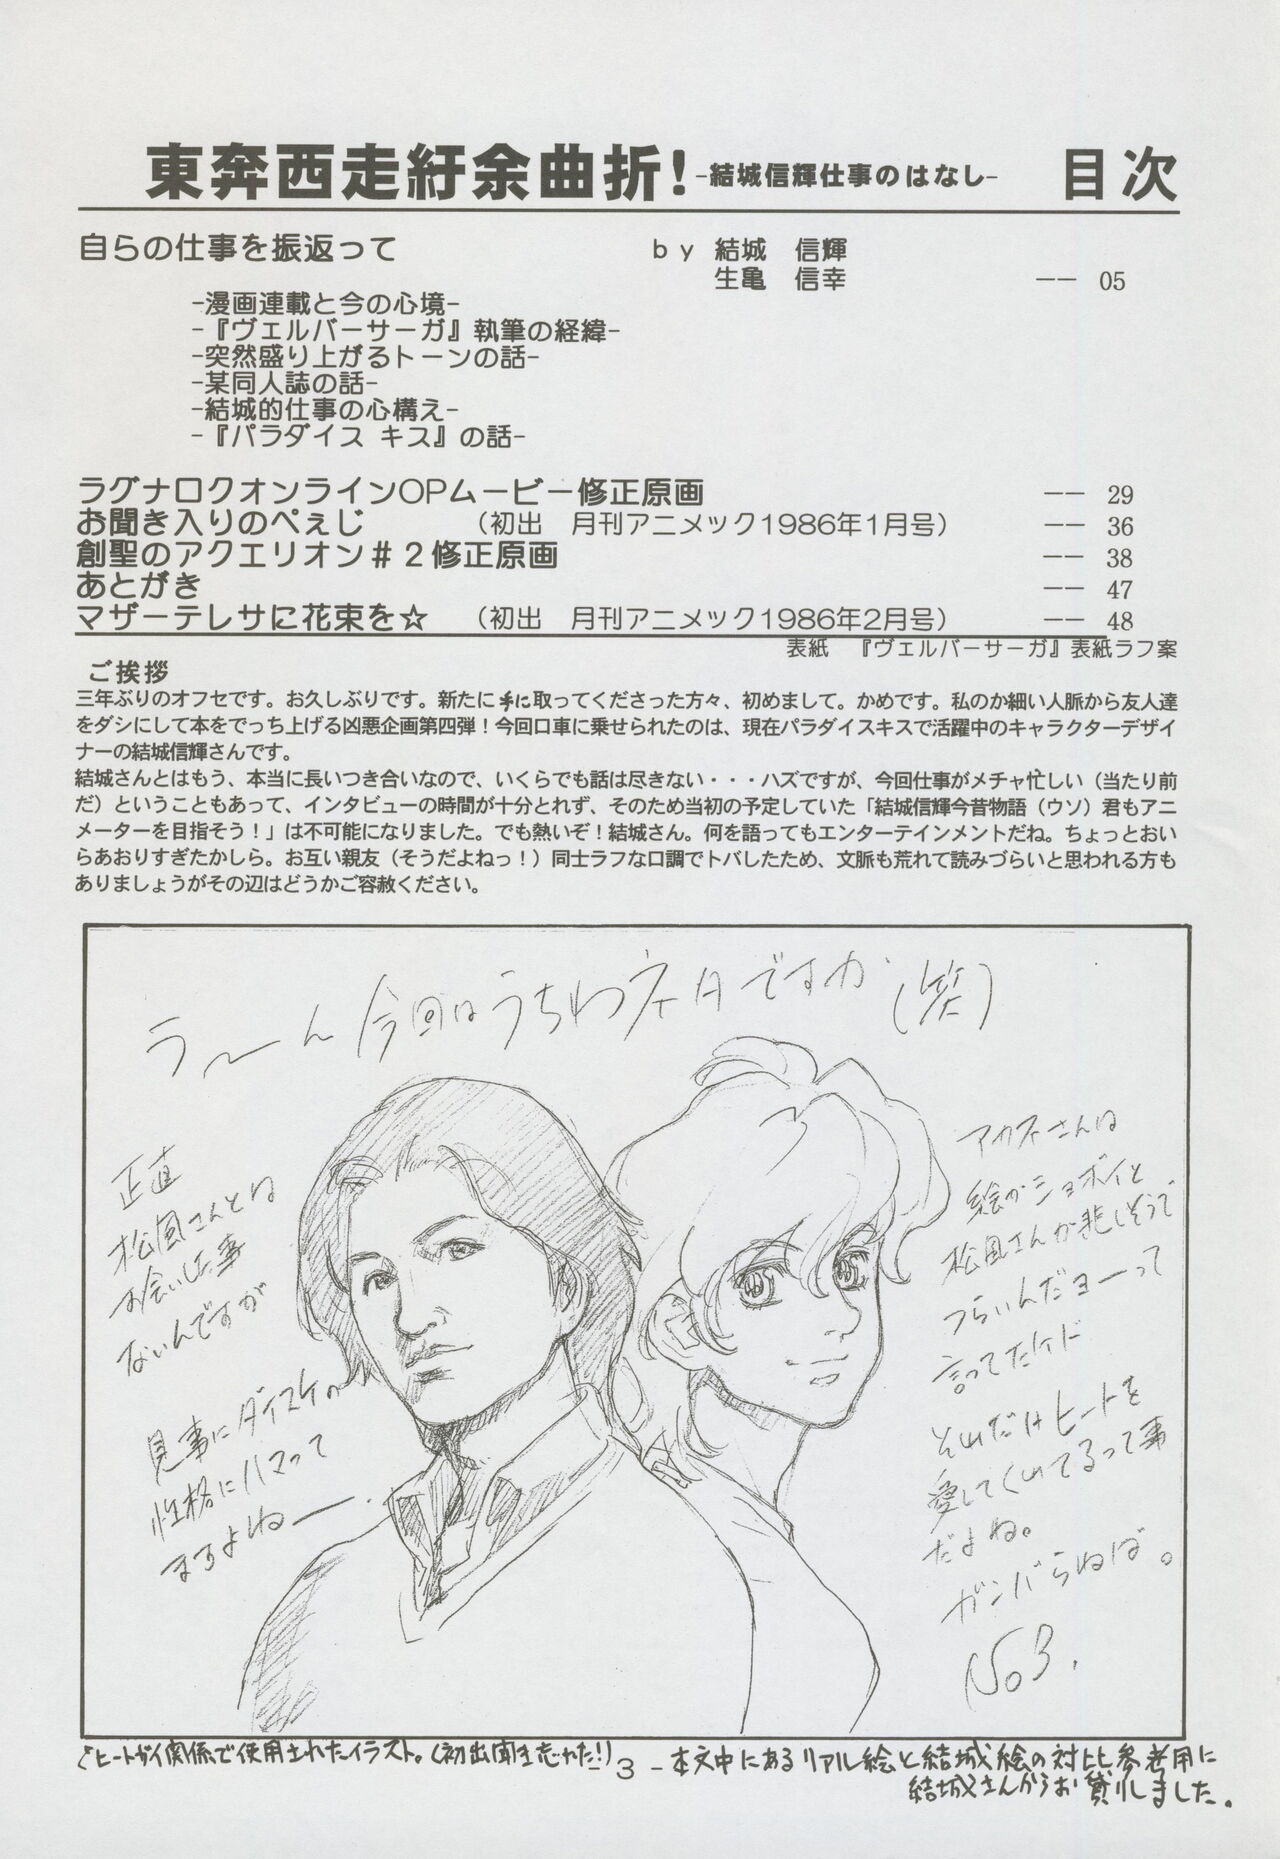 東奔西走紆余曲折! -結城信輝仕事のはなし- 目次
自らの仕事を振返って by 結城 信輝
生亀 信幸 —— 05
-漫画連載と今の心境-
-『ヴェルバーサーガ』執筆の経緯-
-突然盛り上がるトーンの話-
-某同人誌の話-
-結城的仕事の心構え-
-『パラダイス キス』の話-
ラグナロクオンラインOPムービー修正原画 —— 29
お聞き入りのぺぇじ (初出 月刊アニメック1986年1月号) —— 36
創聖のアクエリオン#2修正原画 —— 38
あとがき —— 47
マザーテレサに花束を☆ (初出 月刊アニメック1986年2月号) —— 48
表紙 『ヴェルバーサーガ』表紙ラフ案
ご挨拶
三年ぶりのオフセです。お久しぶりです。新たに手に取ってくださった方々、初めまして。かめです。私のか細い人脈から友人達
をダシにして本をでっち上げる凶悪企画第四弾!今回口車に乗せられたのは、現在パラダイスキスで活躍中のキャラクターデザイ
ナーの結城信輝さんです。
結城さんとはもう、本当に長いつき合いなので、いくらでも話は尽きない・・・ハズですが、今回仕事がメチャ忙しい(当たり前
だ)ということもあって、インタビューの時間が十分とれず、そのため当初の予定していた「結城信輝今昔物語(ウソ)君もアニ
メーターを目指そう!」は不可能になりました。でも熱いぞ!結城さん。何を語ってもエンターテインメントだね。ちょっとおい
らあおりすぎたかしら。お互い親友(そうだよねっ!)同士ラフな口調でトバしたため、文脈も荒れて読みづらいと思われる方も
ありましょうがその辺はどうかご容赦ください。
う〜ん今回はうちわネタですか(笑)
正直
松風さんとは
お会いした事
ないんですが
見事にダイスケの
性格にハマって
まろよねー.
アカネさんは
絵がショボイと
松風さんが悲しそうで
つらいんだヨーって
言ってたケド
それだけヒートを
愛してくれてるって事
だよね。
ガンバらねば。
No3.
ヒートガイ関係で使用されたイラスト。(初出聞き忘れた!)
- 3 -
本文中にあるリアル絵と結城絵の対比参考用に
結城さんからお貸りしました。